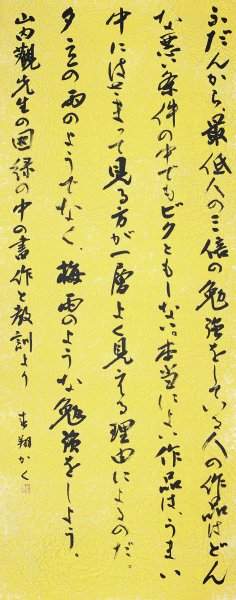 ふだんから、最低人の三倍の勉強をしている人の作品はどん
な悪い条件の中でもビクともしない。本当によい作品は、うまい
中にはさまって見る方が一層よく見える理由によるのだ。
夕立の雨のようでなく、梅雨のような勉強をしよう。
山内觀先生の図録の中の書作と教訓より
春翔かく